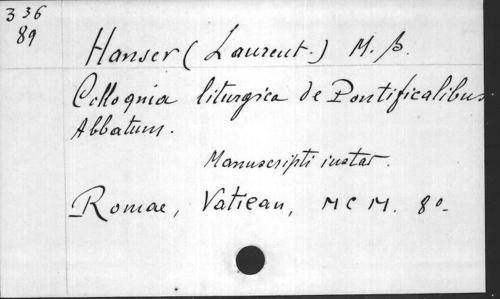 336
89
Hanser (Laurent.) M. b.
Colloquia liturgica de Pontificalibus
Abbatum.
Manuscripti instar.
Romae, Vatican, MCM. 8o-